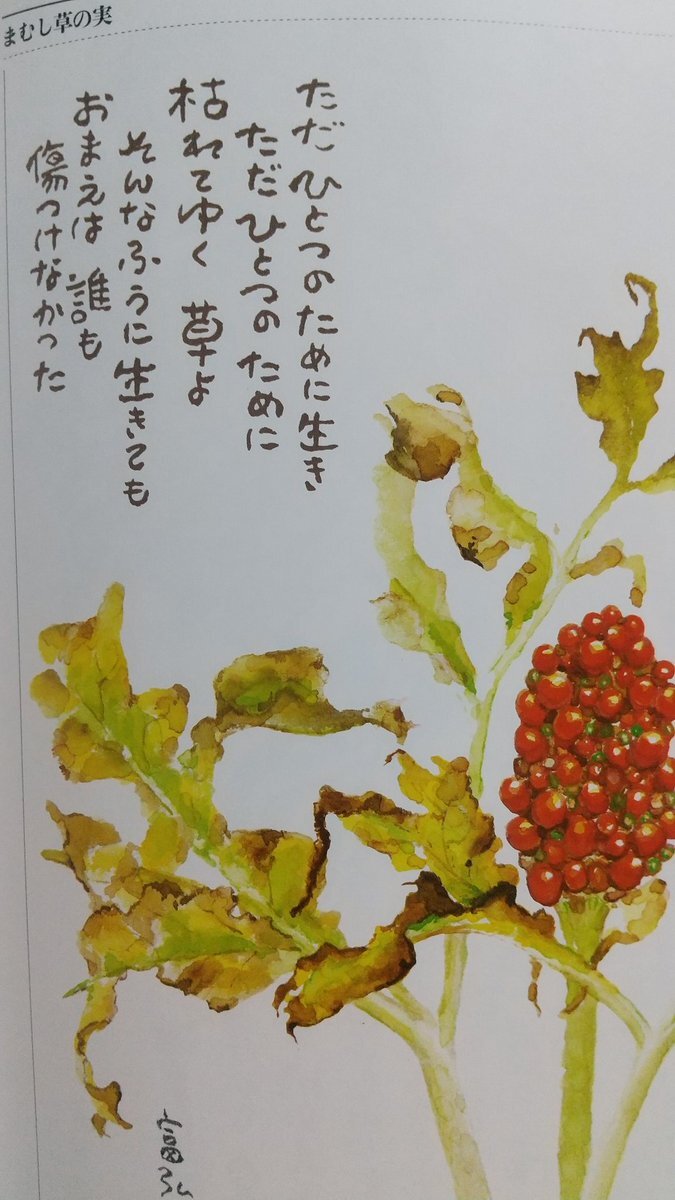 まむし草の実
ただ ひとつのために生き
ただ ひとつの ために
枯れてゆく 草よ
そんなふうに 生きても
おまえは 誰も
傷つけなかった
富弘